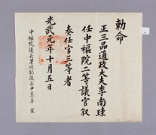 勅命
正三品通政大夫李南珪
任中樞院二等議官叙
奏任官三等者
光武元年十月五日